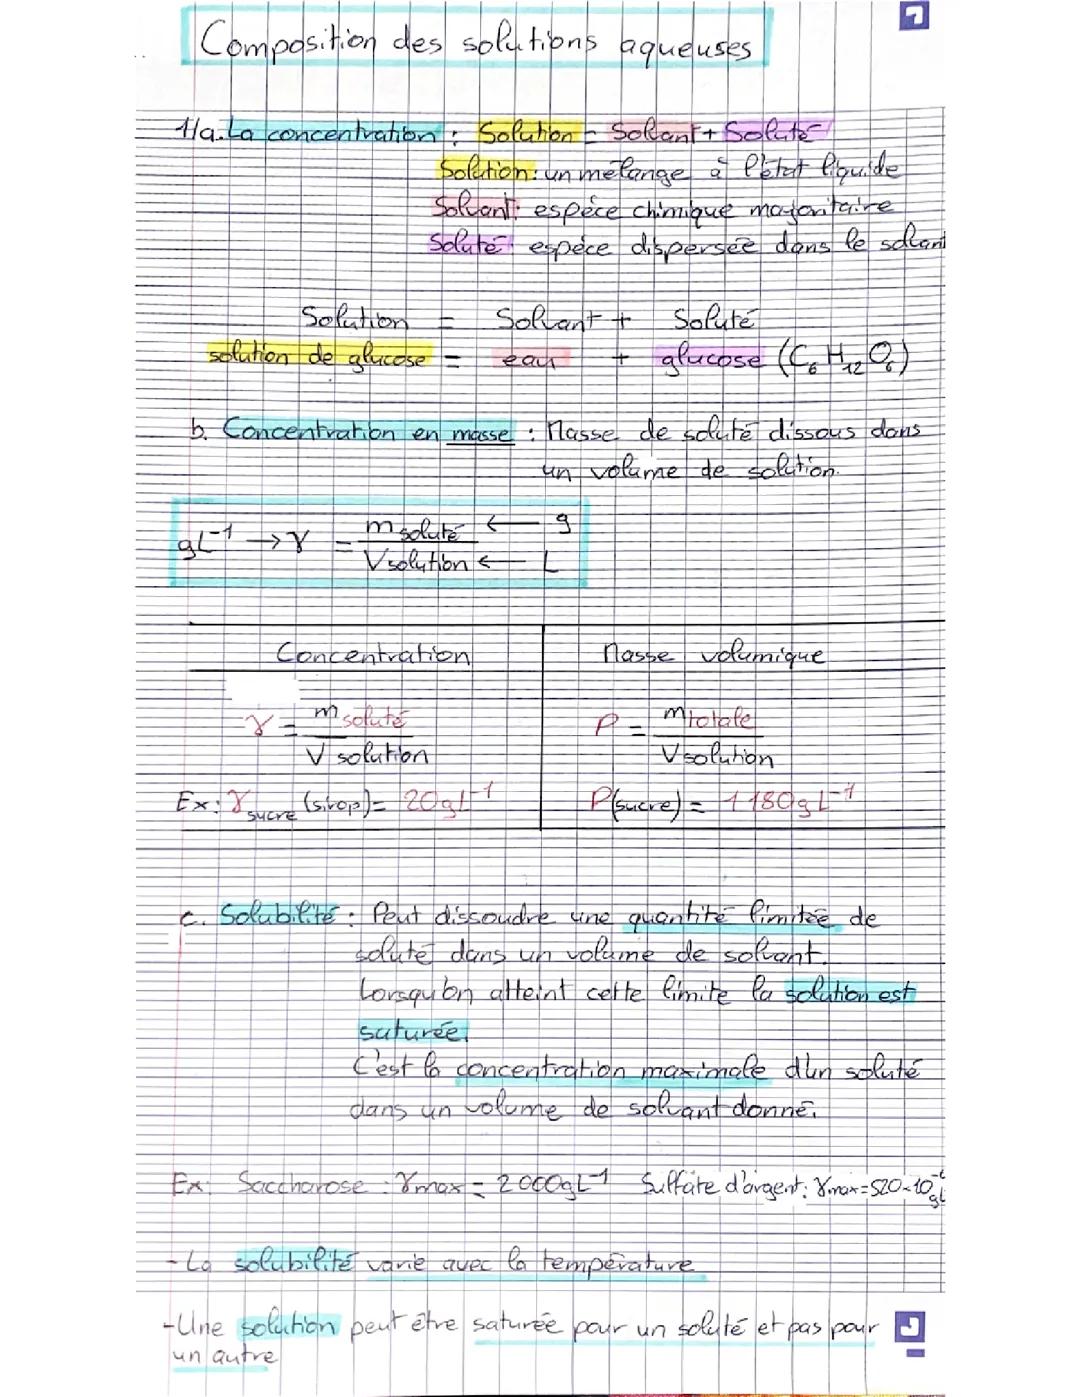 Composition des solutions aqueuses
1/a. La concentration : Solution = Solvant + Soluté
Solution: un mélange à l'état liquide
Solvant: espèce chimique majoritaire
Soluté: espèce dispersée dans le solvant
Solution = Solvant + Soluté
solution de glucose = eau + glucose (C₆H₁₂O₆)
b. Concentration en masse : Masse de soluté dissous dans
un volume de solution.
gL⁻¹ → γ = m soluté ← g
V solution ← L
Concentration Masse volumique
γ = m soluté / V solution ρ = m totale / V solution
Ex: γ sucre (sirop) = 20gL⁻¹ ρ(sucre) = 1180gL⁻¹
c. Solubilité : Peut dissoudre une quantité limitée de
soluté dans un volume de solvant.
Lorsqu'on atteint cette limite la solution est
saturée.
C'est la concentration maximale d'un soluté
dans un volume de solvant donné.
Ex: Saccharose : γmax = 2000gL⁻¹ Sulfate d'argent: γmax = 520
- La solubilité varie avec la température
- Une solution peut être saturée pour un soluté et pas pour
un autre